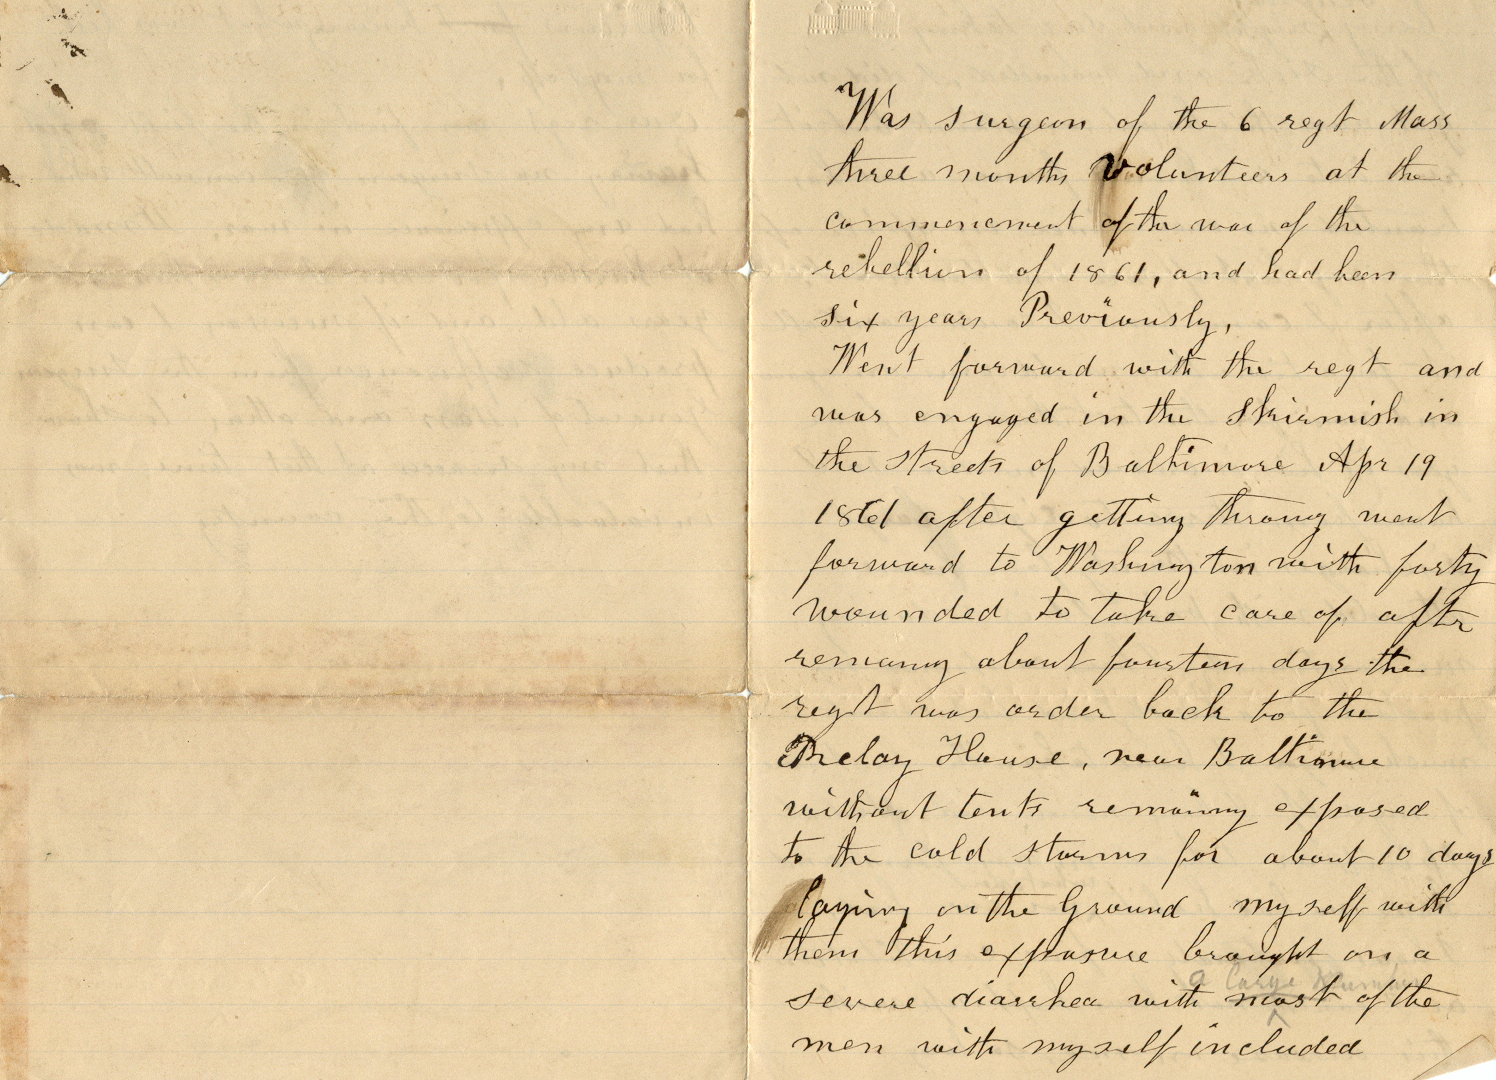 Was surgeon of the 6 regt Mass
three months volunteers at the
commencement of the war of the
rebellion of 1861, and had been
six years Previously,
Went forward with the regt and
was engaged in the Skirmish in
the streets of Baltimore Apr 19
1861 after getting throug went
forward to Washington with forty
wounded to take care of after
remaing about fourteen days the
regt was order back to the
Relay House, near Baltimore
without tents remaining exposed
to the cold storms for about 10 days
laying on the Ground myself with
them this exposure brought on a
a large number
severe diarrhea with most of the
men with myself included